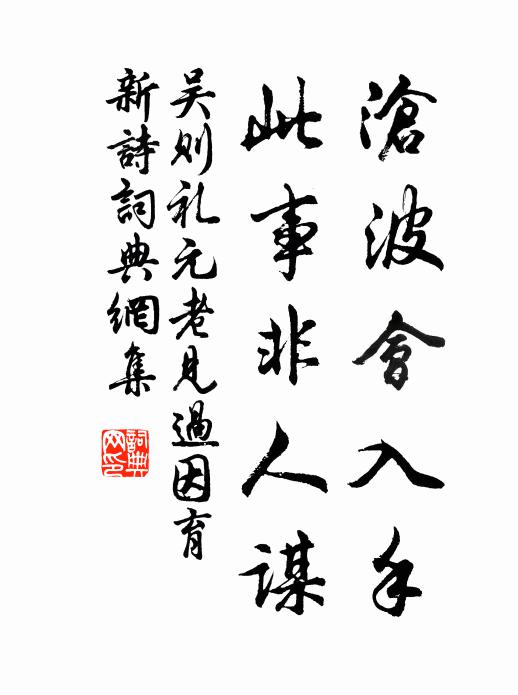 滄波會入手
此事非人謀
吴则礼元老見過因育
新詩詞典網集
詞典
网印